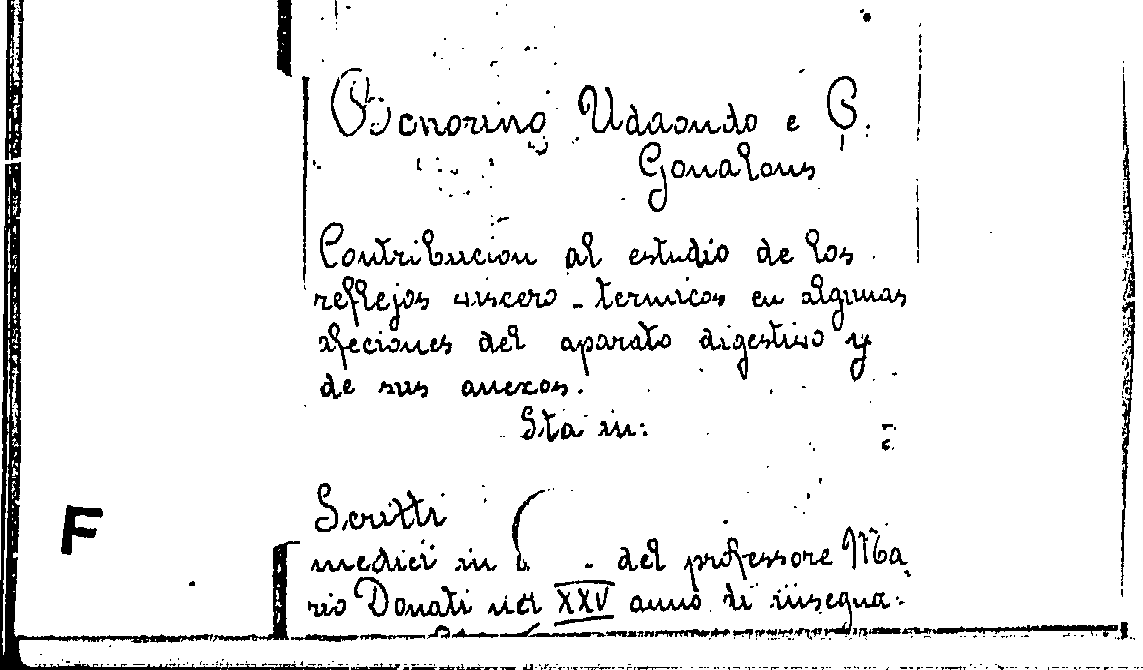 Bonorino Udaondo e G.
Gonalons
Contribucion al estudio de los
reflejos viscero-termicos en algunas
afeciones del aparato digestivo y
de sus anexos.
Sta in:
Scritti
medici in del professore Ma
rio Donati nel XXV anno di insegna-
F